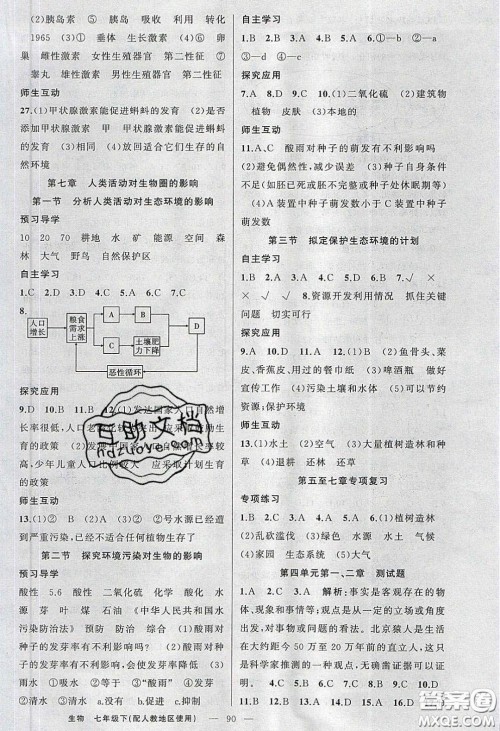 (2)胰岛素 ⑤ 胰岛 吸收 利用 转化
1965 (3)① 垂体 生长激素 (4)⑥ 卵
巢 雌性激素 女性生殖器官 第二性征 ⑦
睾丸 雄性激素 男性生殖器官 第二性征
师生互动
27.(1)甲状腺激素能促进蝌蚪的发育 (2)是否
添加甲状腺激素 甲 甲状腺激素能促进蝌
蚪的发育 (4)放回适合它们生存的自
然环境
第七章 人类活动对生物圈的影响
第一节 分析人类活动对生态环境的影响
预习导学
10 20 70 耕地 水 矿 能源 空间 森
林 大气 野鸟 自然保护区
自主学习
1.C 2.D 3.D 4.A 5.C 6.C 7.C
8.
人口增长 粮食需求上涨 A B C 土壤肥力下降 D
恶性循环
探究应用
9.D 10.B 11.D 12.(1)发达国家人口自然增
长率很低,人口老
育的政策 (2)发展
少年儿童人口 应采取计划生育
的政策
师生互动
13.(1)②① ② ④ (2)号水源已经受到
严重污染,已不适于生物的生存了
第二节 探究环境污染对生物的影响
预习导学
酸性 5.6 二氧化硫 化学 酸化 水
源 芽 叶 煤 石油 《中华人民共和国水
污染防治法》 预防 防治 综合 (1)酸雨对
种子的发芽有不利影响吗 (2)酸雨对种子
的发芽有不利影响,会使发芽率降低 (3)①
雨水 ②清水 ④等量 ⑥“酸雨” ⑧每天
⑨清水 (4)酸雨 使发芽率降低
自主学习
1.B 2.A 3.B 4.A 5.A 6.①→③→②→④
探究应用
7.A 8.A 9.D 10.(1)二氧化硫 (2)建筑物
植物 皮肤 (3)本地的
师生互动
11.A.C 酸雨对种子的萌发有不利影响吗
(2)避免偶然性,减少误差 (3)种子自身条件
不是都已成熟(或有的种子胚已死亡或有的种子
处于休眠期等)
(4)A装置中种子萌发数小于C装置中种子
萌发数
第三节 拟定保护生态环境的计划
自主学习
1.B 2.D 3.B 4.A 5.C 6.C 7.
8.资源开发利用情况 抓住关键
问题 切实可行
探究应用
9.A 10.D 11.A 12.(1)废报纸 (2)鱼骨头、菜
皮、香蕉皮、用过的餐巾纸 (3)啤酒瓶 做好
宣传工作 (4)污染土壤和水体 (5)可以节约
资源;保护环境
师生互动
13.(1)水土 (2)空气 (3)大量植树造林和种
草 (4)退耕 还林 还草
第五至七章专项复习
专项练习
1.B 2.C 3.A 4.D 5.A 6.D 7.(1)植树造林
(2)乱砍滥伐 (3)绿色 水源 水土 气候
(4)家园 生态系统 生态危机
第四单元第一、二章 测试题
1.C 2.C 3.A 解析:事实是人们观察到的
现象和事情等;观点是一个人从一定的立场或
角度出发,对事物或问题的看法。北京猿人是生活在
大约距今 50 万至 20 万年前的直立人,这只能
是科学家推测的观点,没有得到真实的证据
生物 七年级下(配人教地区使用) — 90 —
互助文档
hdzuowe.com
答案圈
MXQE.COM